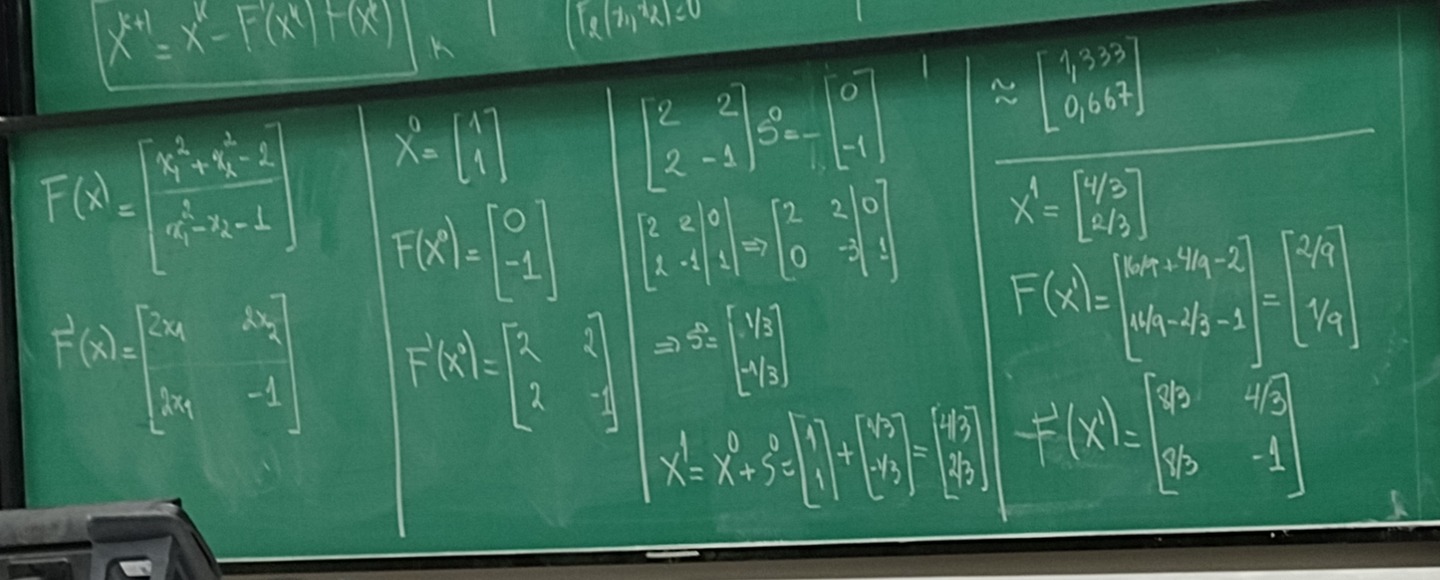 X^{k+1} = X^k - F'(X^k) F(X^k)
k
F_2(x_1, x_2) = 0
F(x) = [x_1^2 + x_2^2 - 2; x_1^2 - x_2 - 1]
F'(x) = [2x_1 2x_2; 2x_1 -1]
X^0 = [1; 1]
F(X^0) = [0; -1]
F'(X^0) = [2 2; 2 -1]
[2 2; 2 -1] S^0 = - [0; -1]
[2 2 | 0; 2 -1 | 1] ⇒ [2 2 | 0; 0 -3 | 1]
⇒ S^0 = [1/3; -1/3]
X^1 = X^0 + S^0 = [1; 1] + [1/3; -1/3] = [4/3; 2/3]
≈ [1,333; 0,667]
X^1 = [4/3; 2/3]
F(X^1) = [16/9 + 4/9 - 2; 16/9 - 2/3 - 1] = [2/9; 1/9]
F'(X^1) = [8/3 4/3; 8/3 -1]